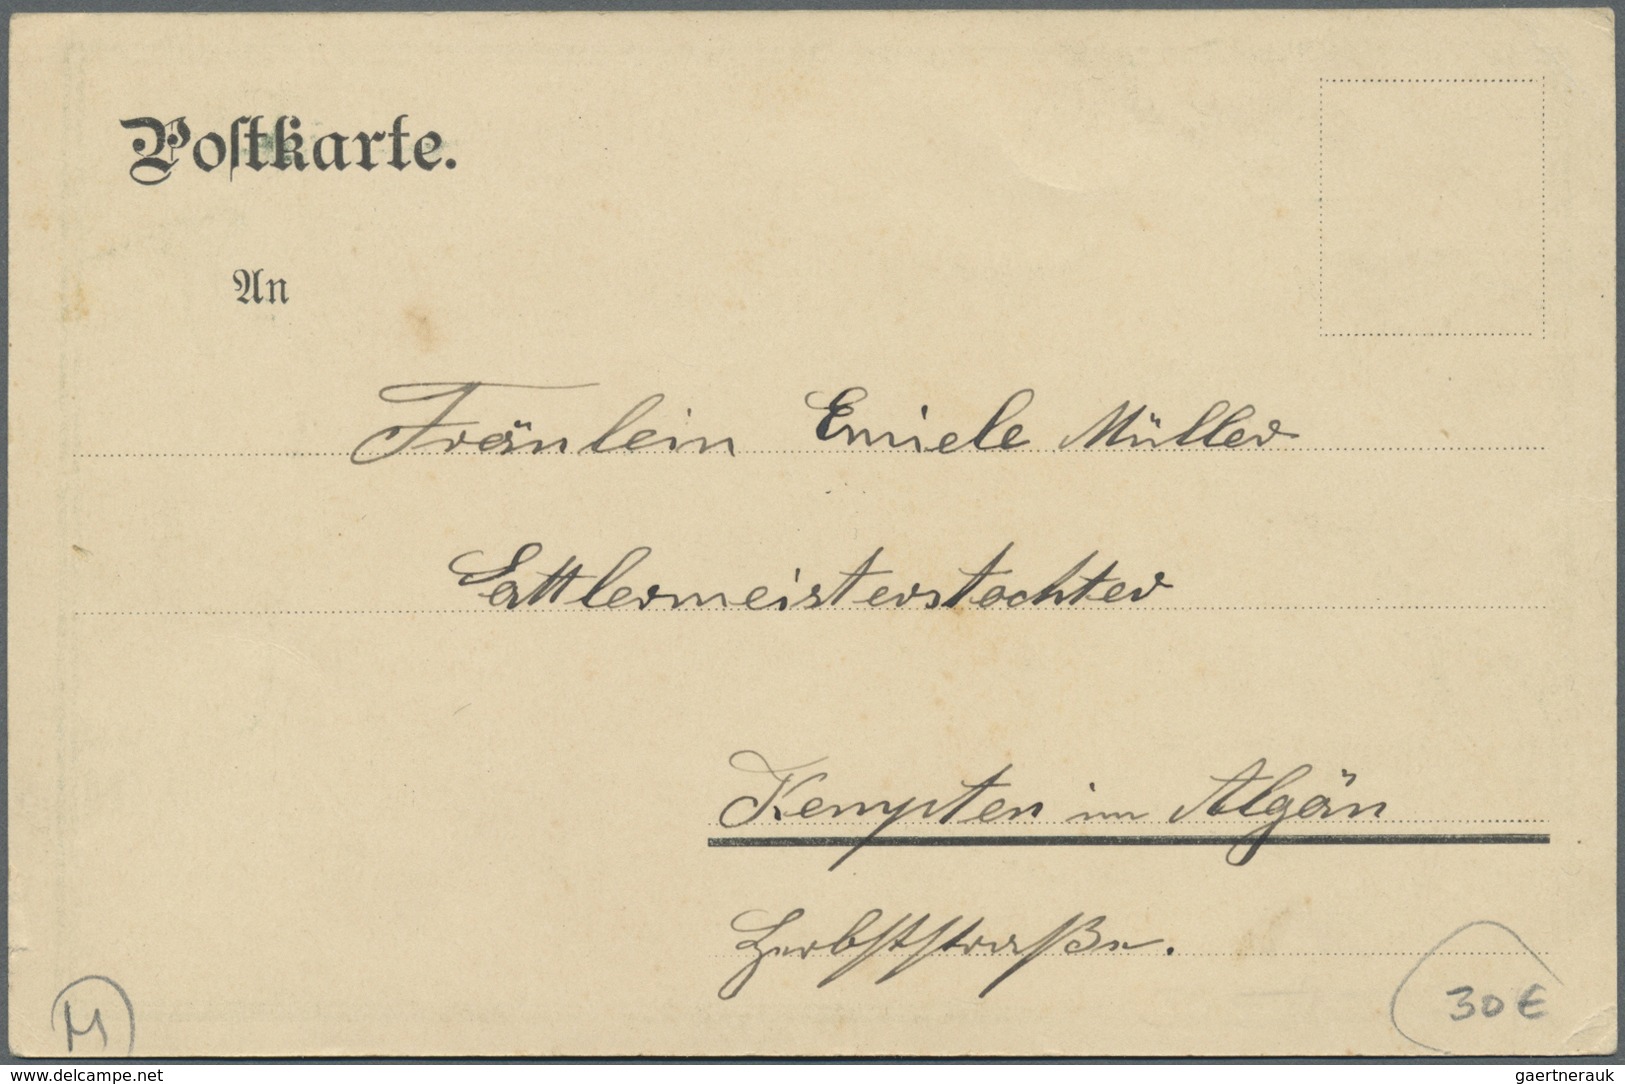 Postkarte.
An
Fränlein Emiele Müller
Sattlermeisterstochter
Kempten im Algän
Herbststraße.
M
30 €
www.delcampe.net
gaertnerauk